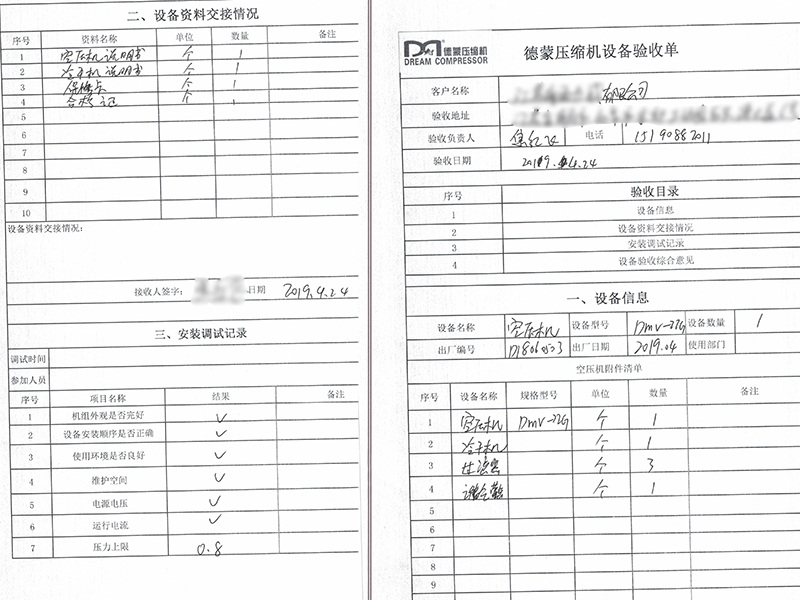 二、设备资料交接情况
序号 资料名称 单位 数量 备注
1 空压机说明书 个 1
2 冷干机说明书 个 1
3 保修卡 个 1
4 合格证 个 1
5
6
7
8
9
10
设备资料交接情况:
接收人签字: 日期 2019.4.24
三、安装调试记录
调试时间
参加人员
序号 项目名称 结果 备注
1 机组外观是否完好 ✓
2 设备安装顺序是否正确 ✓
3 使用环境是否良好 ✓
4 维护空间 ✓
5 电源电压 ✓
6 运行电流 ✓
7 压力上限 0.8
德蒙压缩机
DREAM COMPRESSOR
德蒙压缩机设备验收单
客户名称 有限公司
验收地址
验收负责人 电话 15190882011
验收日期 2019.4.24
序号 验收目录
1 设备信息
2 设备资料交接情况
3 安装调试记录
4 设备验收综合意见
一、设备信息
设备名称 空压机 设备型号 DMV-22G 设备数量 1
出厂编号 出厂日期 2019.04 使用部门
空压机附件清单
序号 设备名称 规格型号 单位 数量 备注
1 空压机 DMV-22G 个 1
2 冷干机 个 1
3 过滤器 个 3
4 个 1
5
6
7
8
9